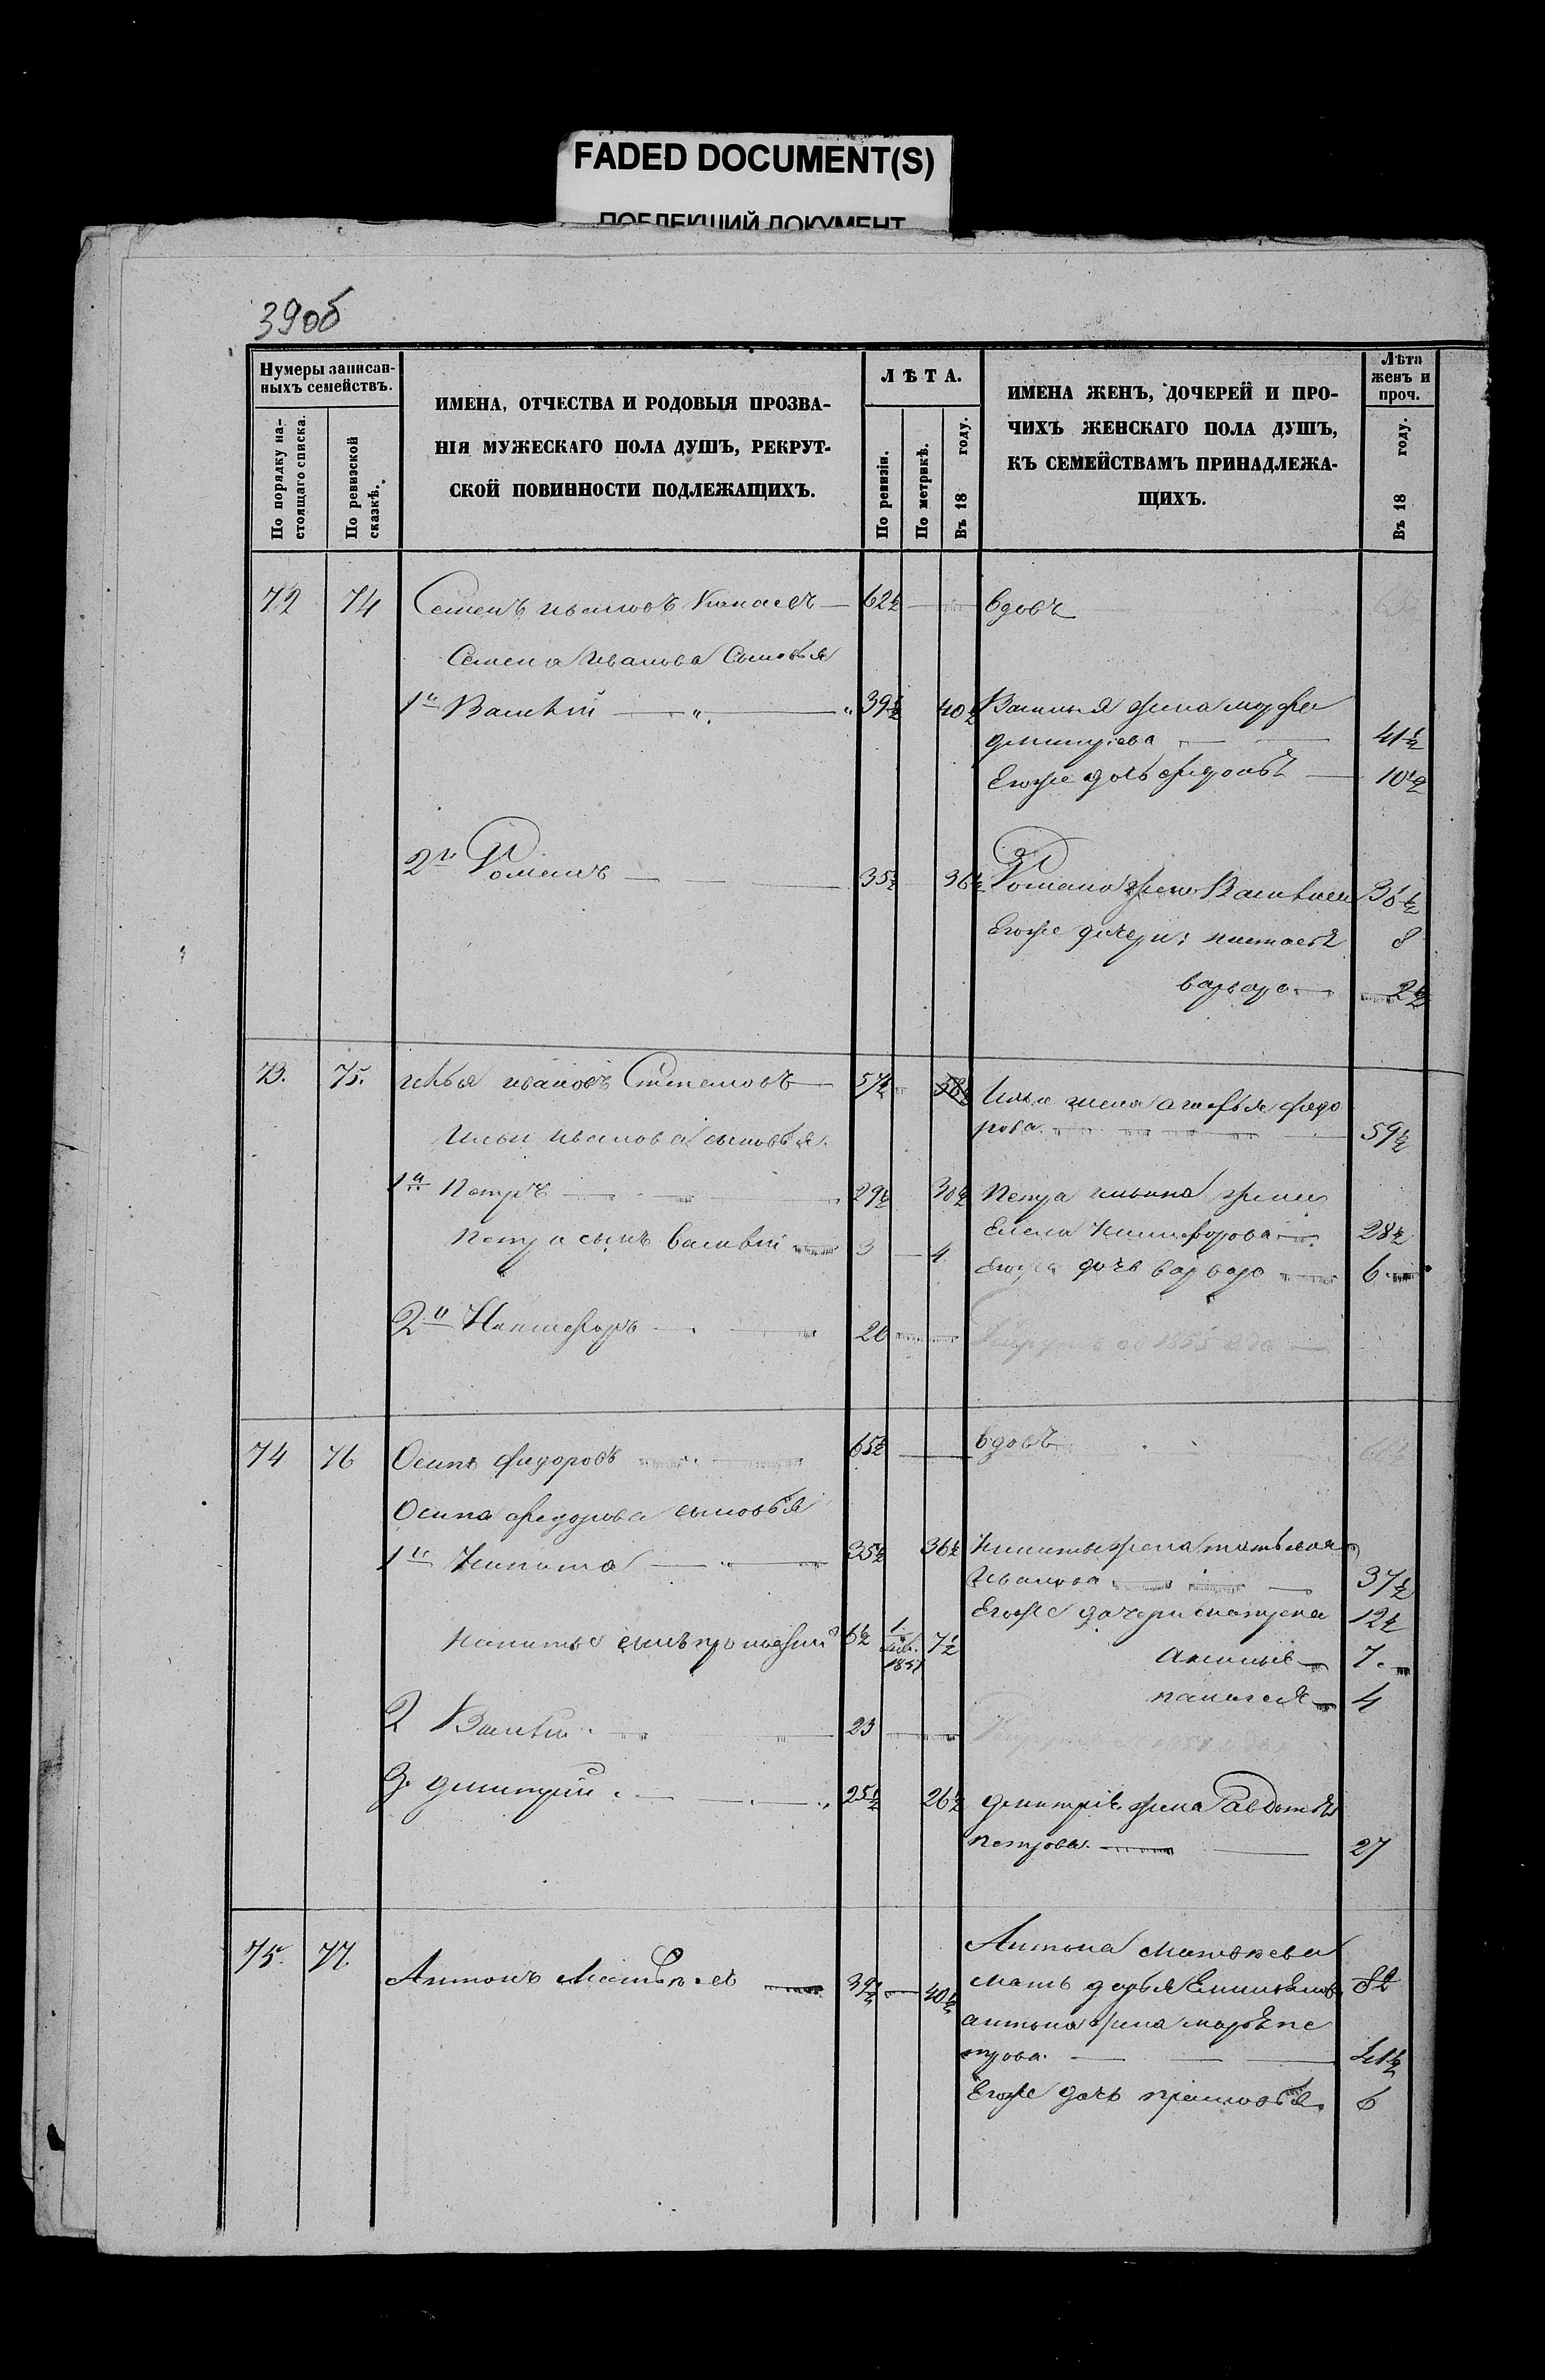 FADED DOCUMENT(S)
ПОБЛЕКШИЙ ДОКУМЕНТ
39об
Нумеры записан-
ныхъ семействъ.
По порядку на-
стоящаго списка.
По ревизской
сказкѣ.
ИМЕНА, ОТЧЕСТВА И РОДОВЫЯ ПРОЗВА-
НІЯ МУЖЕСКАГО ПОЛА ДУШЪ, РЕКРУТ-
СКОЙ ПОВИННОСТИ ПОДЛЕЖАЩИХЪ.
ЛѢТА.
По ревизіи.
По метрикѣ.
Въ 18 году.
ИМЕНА ЖЕНЪ, ДОЧЕРЕЙ И ПРО-
ЧИХЪ ЖЕНСКАГО ПОЛА ДУШЪ,
КЪ СЕМЕЙСТВАМЪ ПРИНАДЛЕЖА-
ЩИХЪ.
Лѣта
женъ и
проч.
Въ 18 году.
72 74 Семенъ ивановъ 62½ вдовъ
Семена Иванова Сыновья
1й Василій 39½ 40½ Василья жена марфа
дмитріева 41½
Егоже дочь федосья 10½
2й Романъ 35½ 36½ Романа жена 36½
Егоже дочери: настасья 8
варвара 2½
73. 75. илья ивановъ Степановъ 57½ 58½ Ильи жена агафья федо
рова 59½
Ильи Иванова сыновья
1й Петръ 29½ 30½ Петра ильина жена
Елена Никифорова 28½
Петра сынъ василій 3 4
Егоже дочь варвара 6
2й Никифоръ 20 Рекрутъ съ 1855 года
74 76 Осипъ федоровъ 65½ вдовъ
Осипа федорова сыновья
1й Никита 35½ 36½ Никиты жена татьяна
Иванова 37½
Егоже дочери матрена 12½
Никиты сынъ 6½ 1 1851 7½
аксинья 7
пелагея 4
2 Василій 23 Рекрутъ
3. дмитрій 25½ 26½ дмитрія жена авдотья
петрова 27
75. 77. Антонъ Матвѣевъ 39½ 40½ Антона Матвѣева
мать дарья Емельянов 82
антона жена марья пе
трова 41½
Егоже дочь прасковья 6